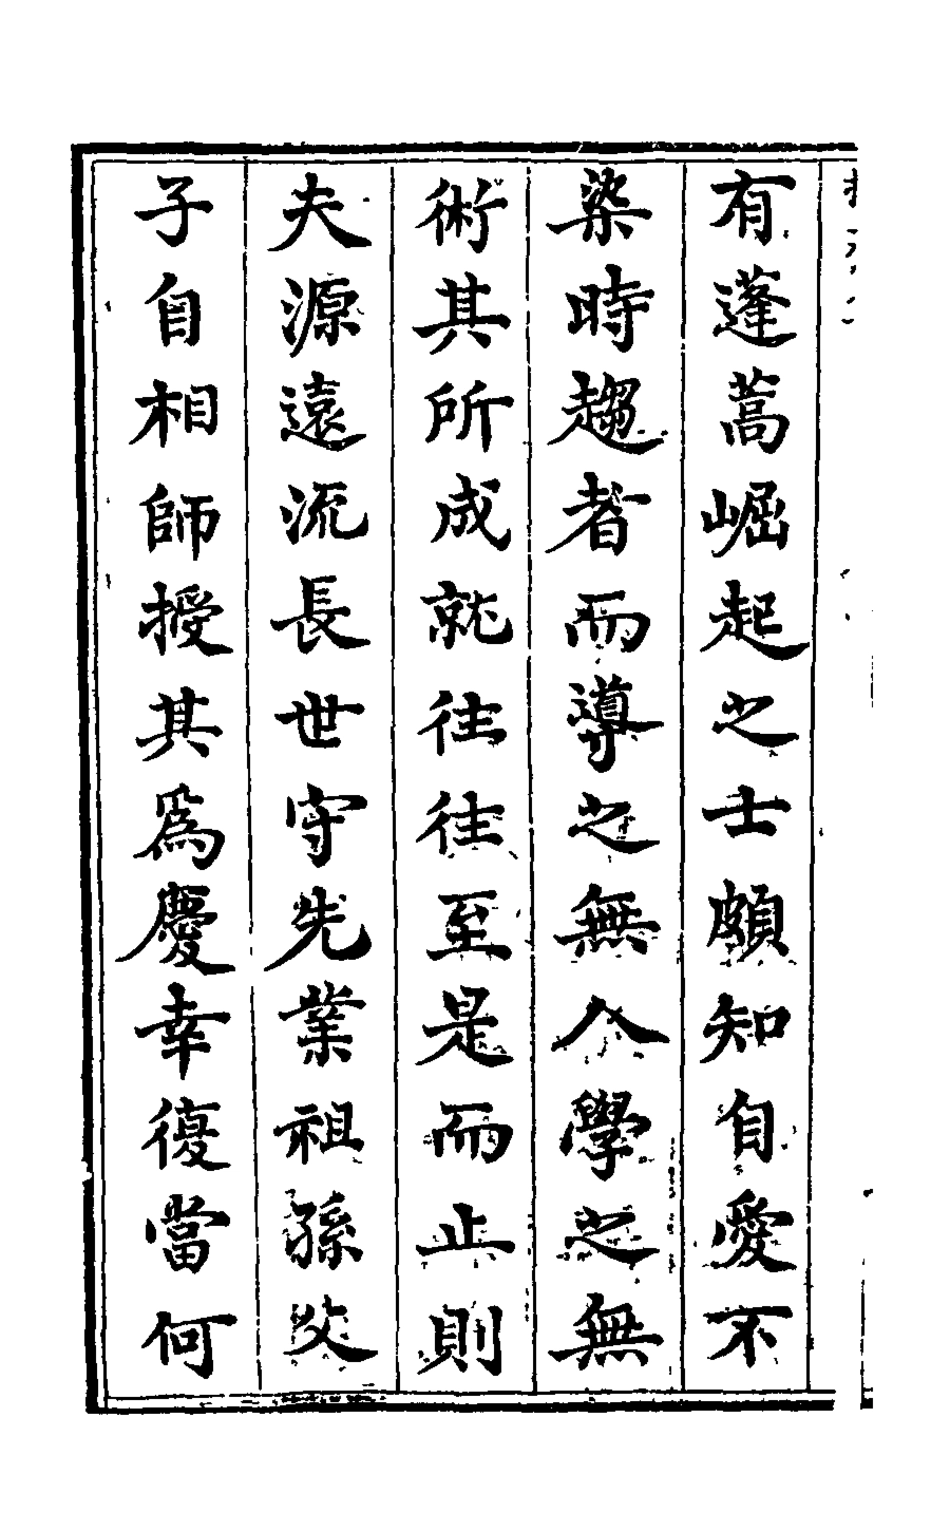 有蓬蒿崛起之士頗知自愛不
染時趨者而導之無人學之無
術其所成就往往至是而止則
夫源遠流長世守先業祖孫父
子自相師授其爲慶幸復當何